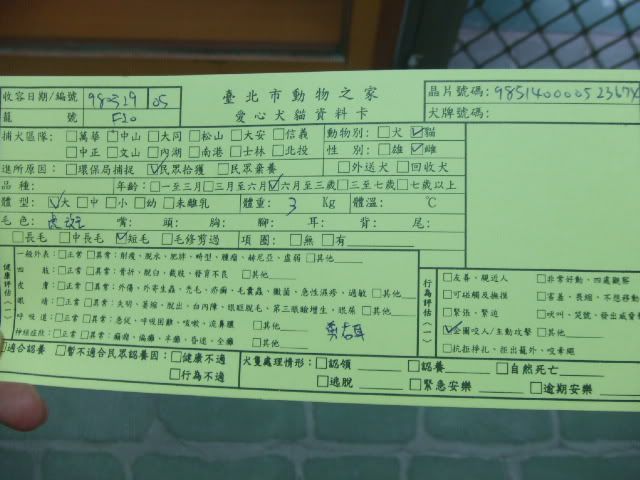 收容日期/編號 980329 05
籠 號 F20
臺北市動物之家
愛心犬貓資料卡
晶片號碼:
犬牌號碼:
捕犬區隊: □萬華 ☑中山 □大同 □松山 □大安 □信義
□中正 □文山 □內湖 □南港 □士林 □北投
動物別: □犬 ☑貓
性 別: □雄 ☑雌
進所原因: □環保局捕捉 ☑民眾拾獲 □民眾棄養 □外送犬 □回收犬
品 種: 年齡: □一至三月 □三月至六月 ☑六月至三歲 □三至七歲 □七歲以上
體 型: ☑大 □中 □小 □幼 □未離乳 體重: 3 Kg 體溫: ℃
毛 色: 虎斑 嘴: 頭: 胸: 腳: 耳: 背: 尾:
□長毛 □中長毛 ☑短毛 □毛修剪過 項 圈: □無 □有
健康評估(一)
一般外表: □正常 □異常: 削瘦、脫水、肥胖、畸型、腫瘤、赫尼亞、虛弱 □其他
四 肢: □正常 □異常: 骨折、脫臼、截肢、發育不良 □其他
皮 膚: □正常 □異常: 外傷、外寄生蟲、禿毛、疥癬、毛囊蟲、黴菌、急性濕疹、過敏 □其他
眼 睛: □正常 □異常: 失明、薯縮、脫出、白內障、眼瞼脫毛、第三眼瞼增生、眼屎 □其他
呼 吸 道: □正常 □異常: 急促、呼吸困難、咳嗽、流鼻膿 □其他
神經症狀: □正常 □異常: 癲癇、偏癱、半癱、昏迷、全癱 □其他
剪右耳
行為評估(一)
□友善、親近人 □非常好動、四處觀察
□可接觸及撫摸 □害羞、畏縮、不想移動
□緊張、緊迫 □吠叫、哭號、發出威脅
☑企圖咬人/主動攻擊 □其他
□抗拒掙扎、拒出籠外、咬牽繩
□適合認養 □暫不適合民眾認養因: □健康不適
□行為不適
犬隻處理情形: □認領 □認養 □自然死亡
□逃脫 □緊急安樂 □逾期安樂